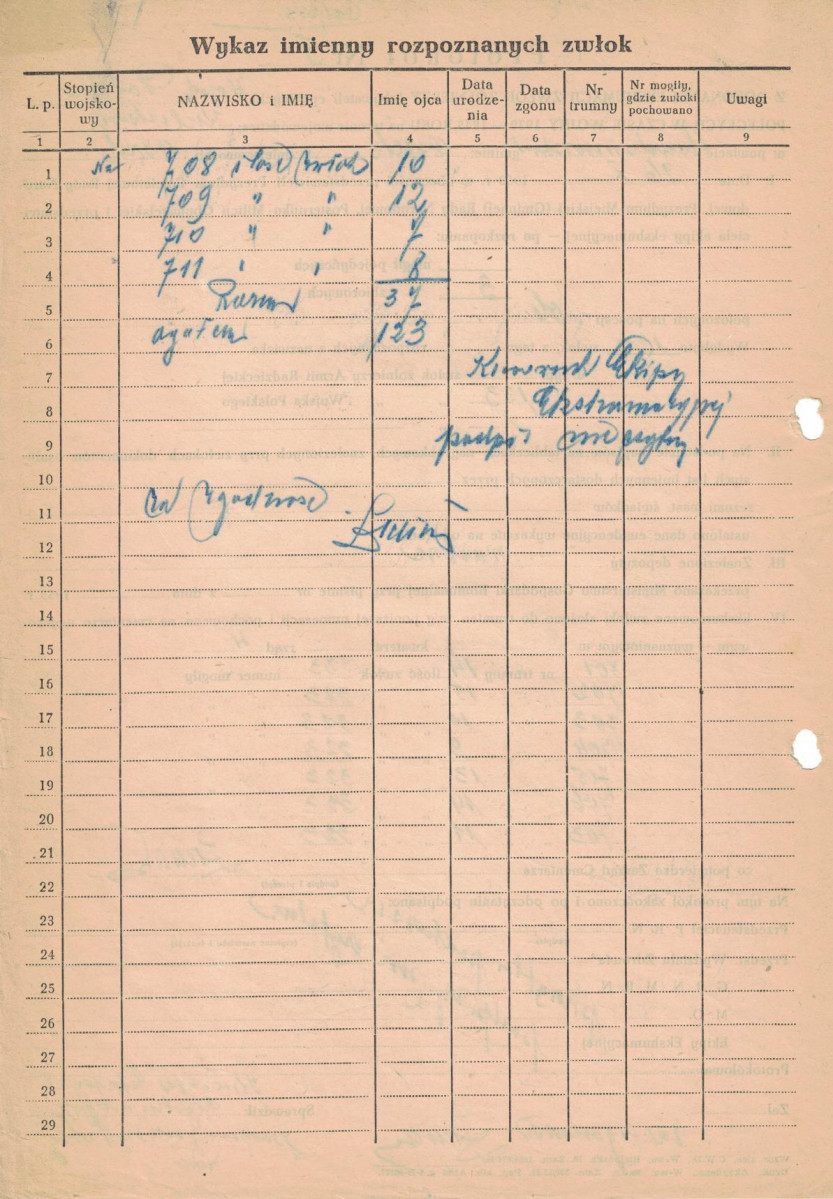 Wykaz imienny rozpoznanych zwłok
L. p. Stopień wojsko-wy NAZWISKO i IMIĘ Imię ojca Data urodze-nia Data zgonu Nr trumny Nr mogiły, gdzie zwłoki pochowano Uwagi
1 2 3 4 5 6 7 8 9
1 Nr 708 ilość zwłok 10
2 709 " " 12
3 710 " " 7
4 711 " " 8
5 Razem 37
6 ogółem 123
7 Kierownik Ekipy
8 Ekshumacyjnej
9 podpis nieczytelny
10
11 Za zgodność
12
13
14
15
16
17
18
19
20
21
22
23
24
25
26
27
28
29